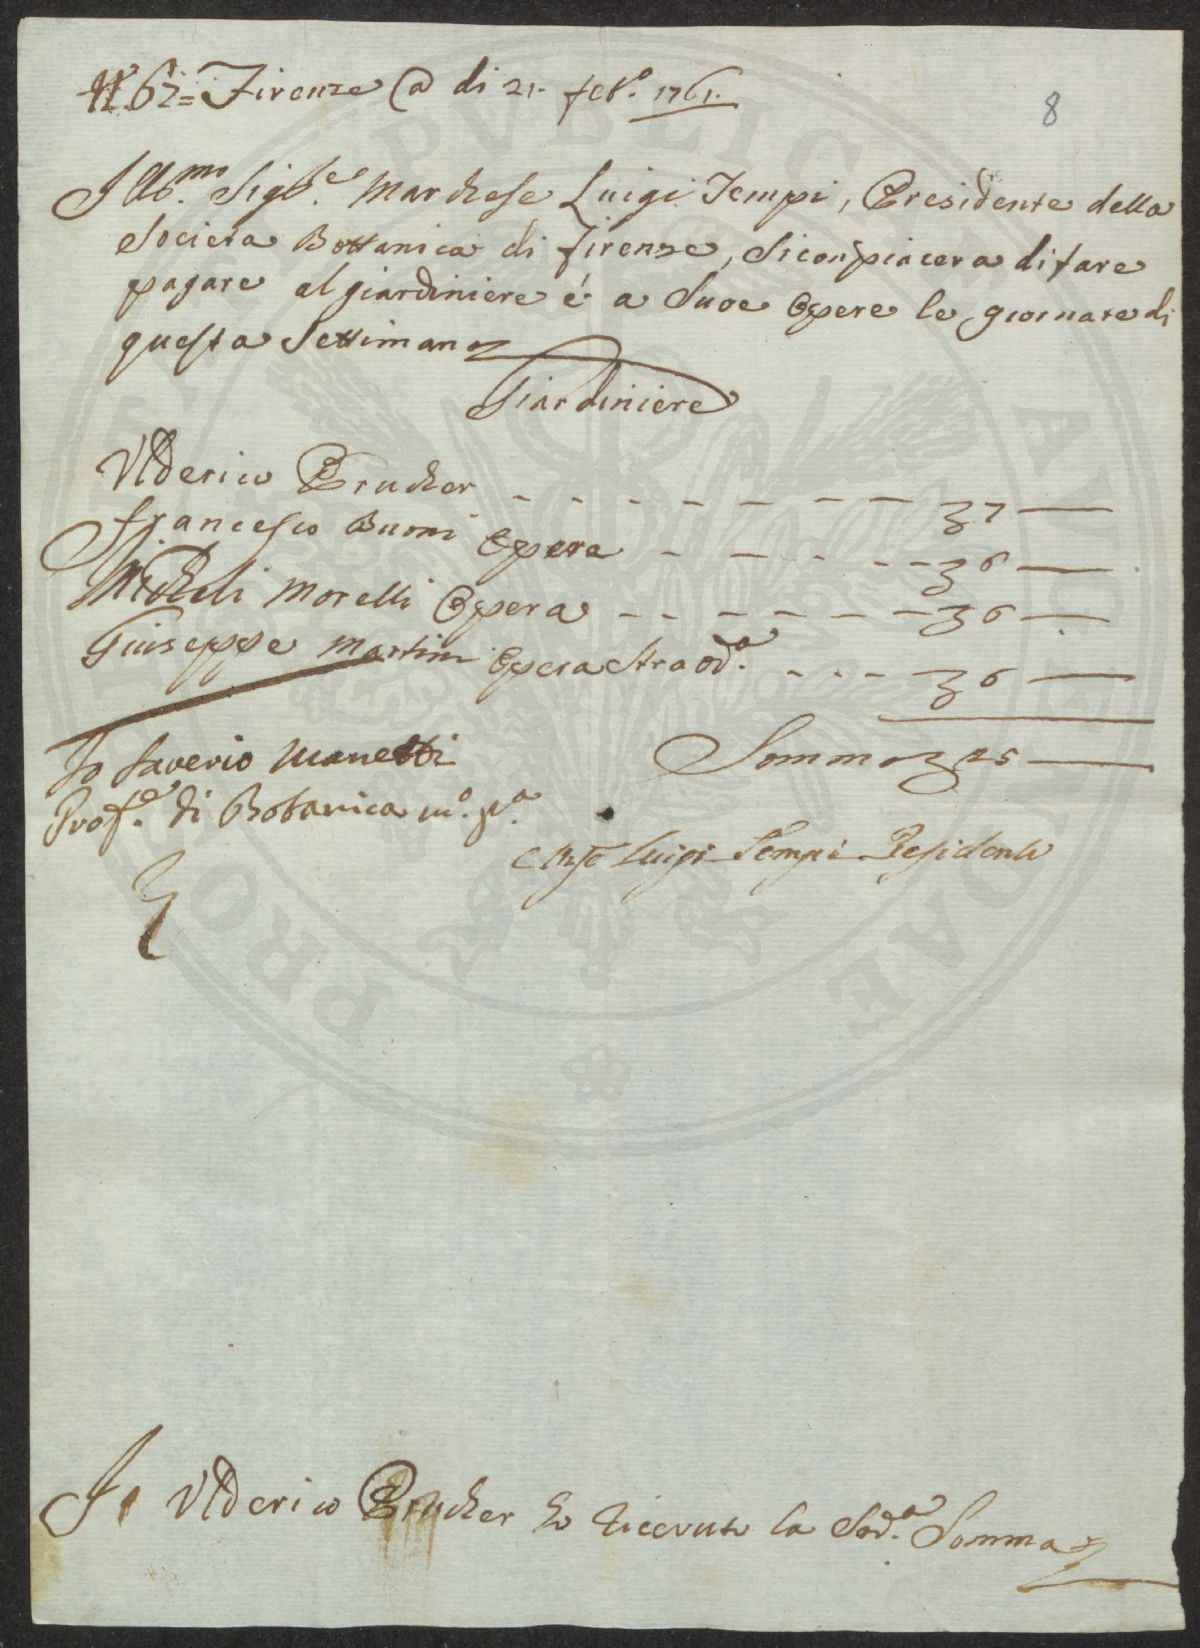 N.° 67= Firenze @ di 21. feb.° 1761.
8
Ill.mo Sig.re Marchese Luigi Tempi, Presidente della
Societa Bottanica di Firenze, si conpiacera di fare
pagare al giardiniere é a Suoe Opere le giornate di
questa Settimana
Giardiniere
Ulderico Prucher - - - - - - - - 7 —
Francesco Buoni Opera - - - - - - 6 —
Micheli Morelli Opera - - - - - - - 6 —
Giuseppe Martini Opera Straord.a - - - - 6 —
Somma 25 —
Io Saverio Manetti
Prof.e di Botanica m.o p.a
Luigi Tempi Presidente
Io Ulderico Prucher ho ricevuto la Sod.a Somma
PUBLICAE PROSPERITATI